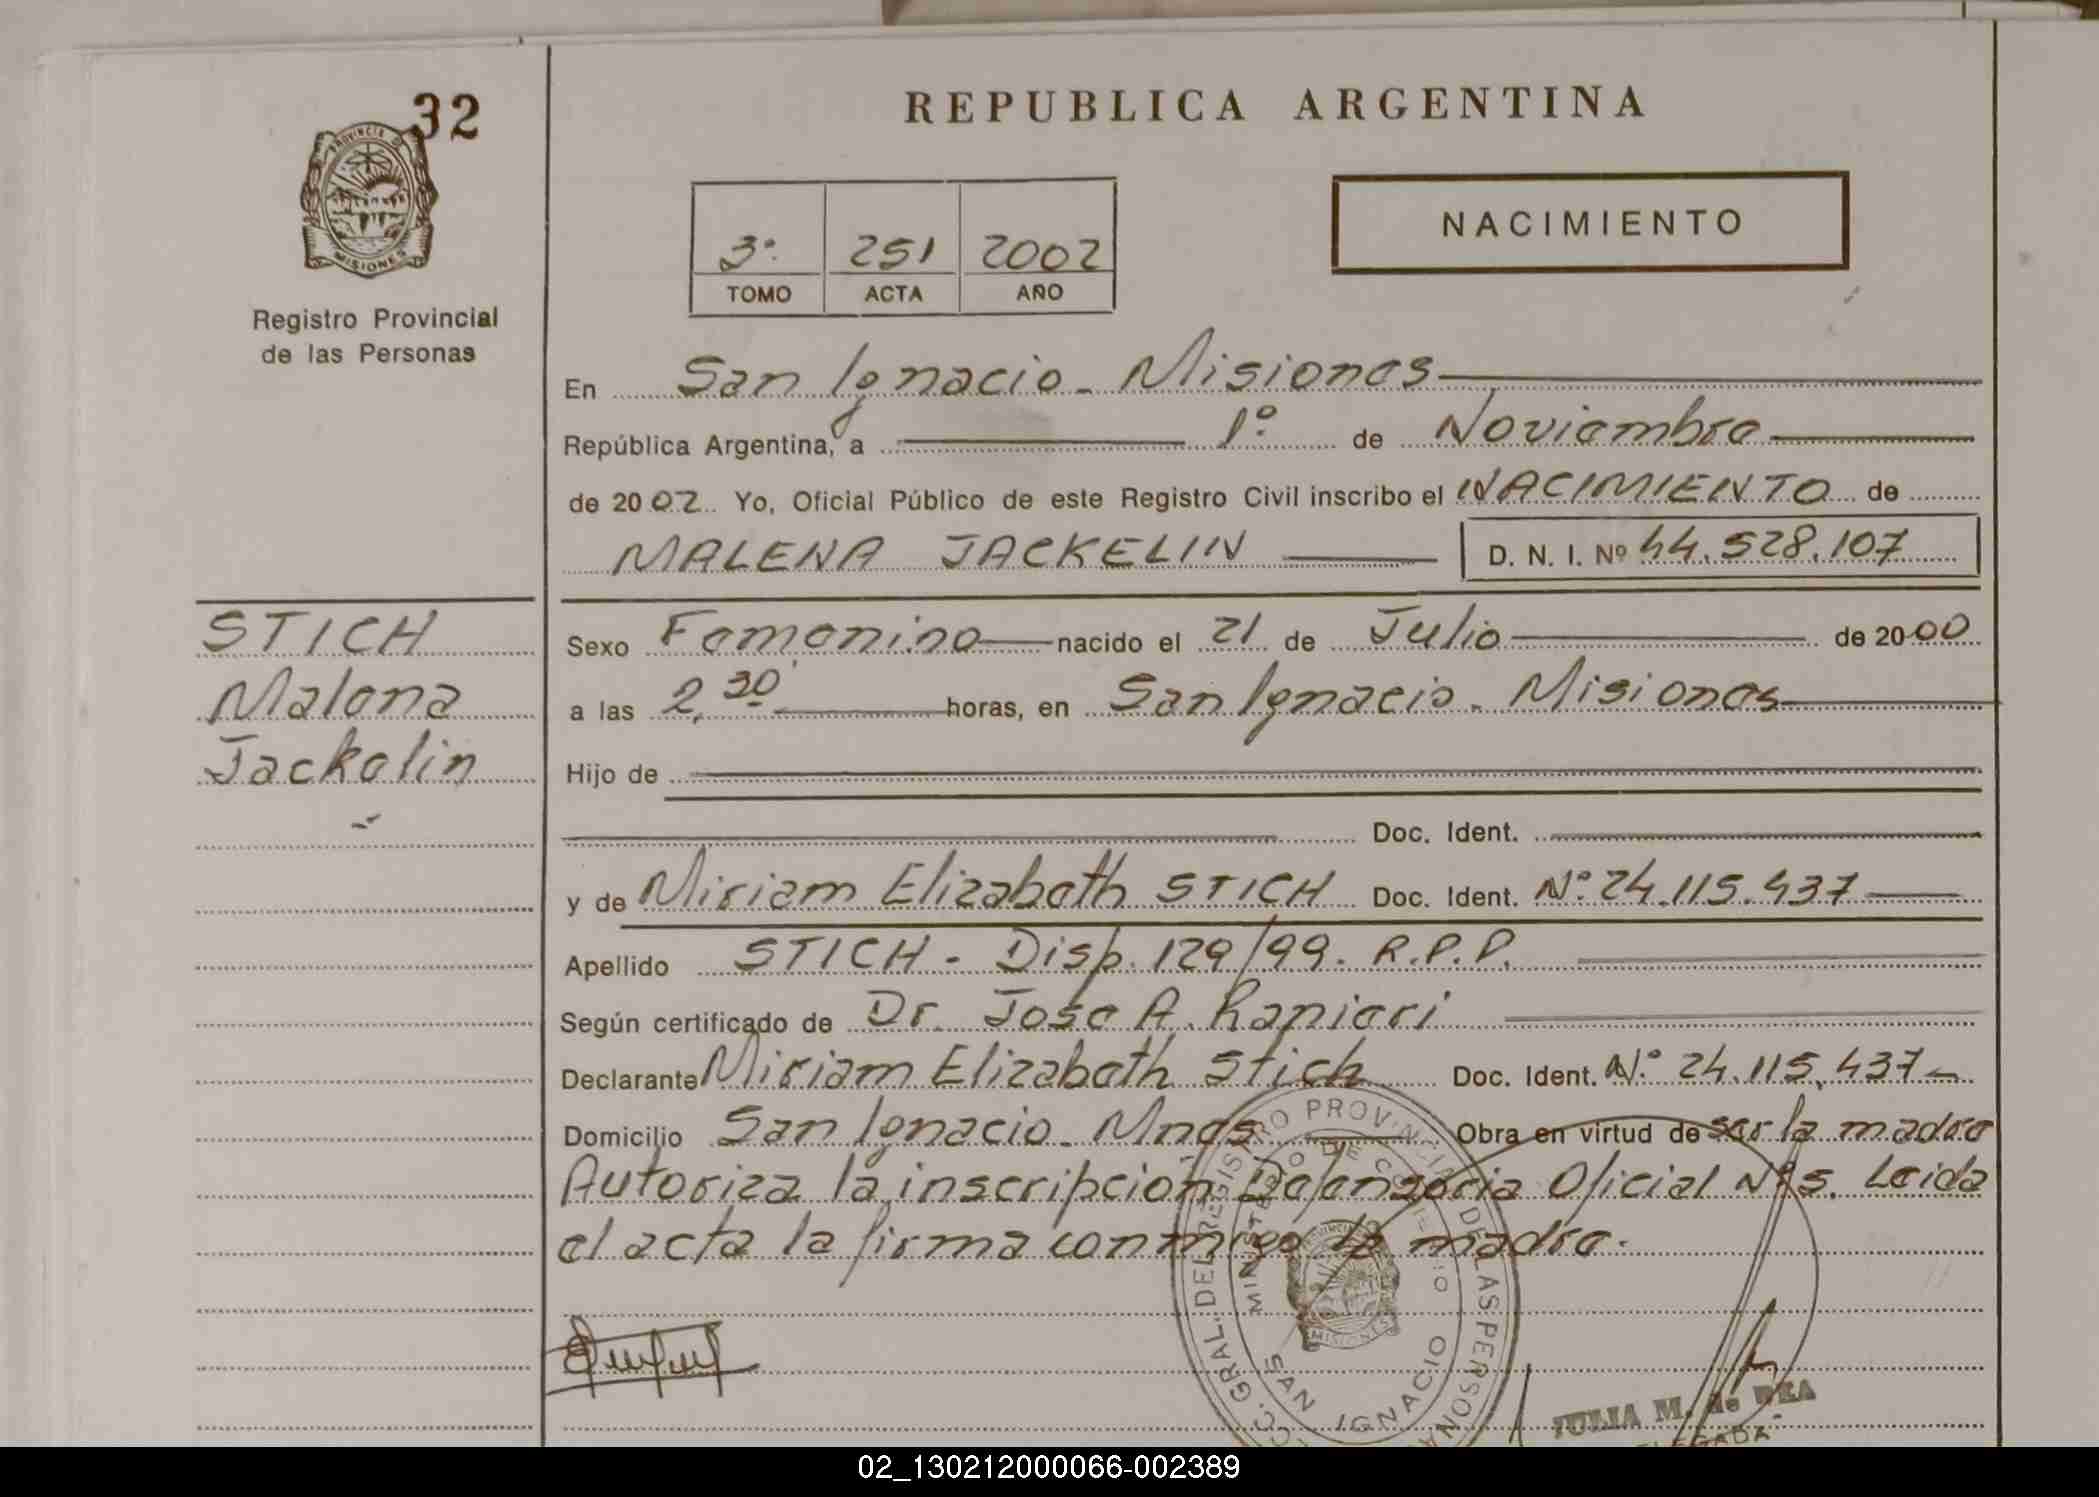 32
PROVINCIA DE
MISIONES
Registro Provincial
de las Personas
REPUBLICA ARGENTINA
3º 251 2002
TOMO ACTA AÑO
NACIMIENTO
En San Ignacio - Misiones
República Argentina, a 1º de Noviembre
de 2002 Yo, Oficial Público de este Registro Civil inscribo el NACIMIENTO de
MALENA JACKELIN D. N. I. Nº 44.528.107
STICH
Malena
Jackelin
Sexo Femenino nacido el 21 de Julio de 2000
a las 2,30 horas, en San Ignacio - Misiones
Hijo de
Doc. Ident.
y de Miriam Elizabeth STICH Doc. Ident. Nº 24.115.437
Apellido STICH - Disp. 129/99. R.P.P.
Según certificado de Dr. Jose A. Ranieri
Declarante Miriam Elizabeth Stich Doc. Ident. Nº 24.115.437
Domicilio San Ignacio - Mnes Obra en virtud de ser la madre
Autoriza la inscripción Defensoria Oficial Nº 5. Leida
el acta la firma conmigo la madre.
GRAL. DEL REGISTRO PROVINCIAL DE LAS PERSONA
MINISTERIO DE GOBIERNO
MISIONES
SAN IGNACIO
JULIA M. de REA
DELEGADA
02_130212000066-002389